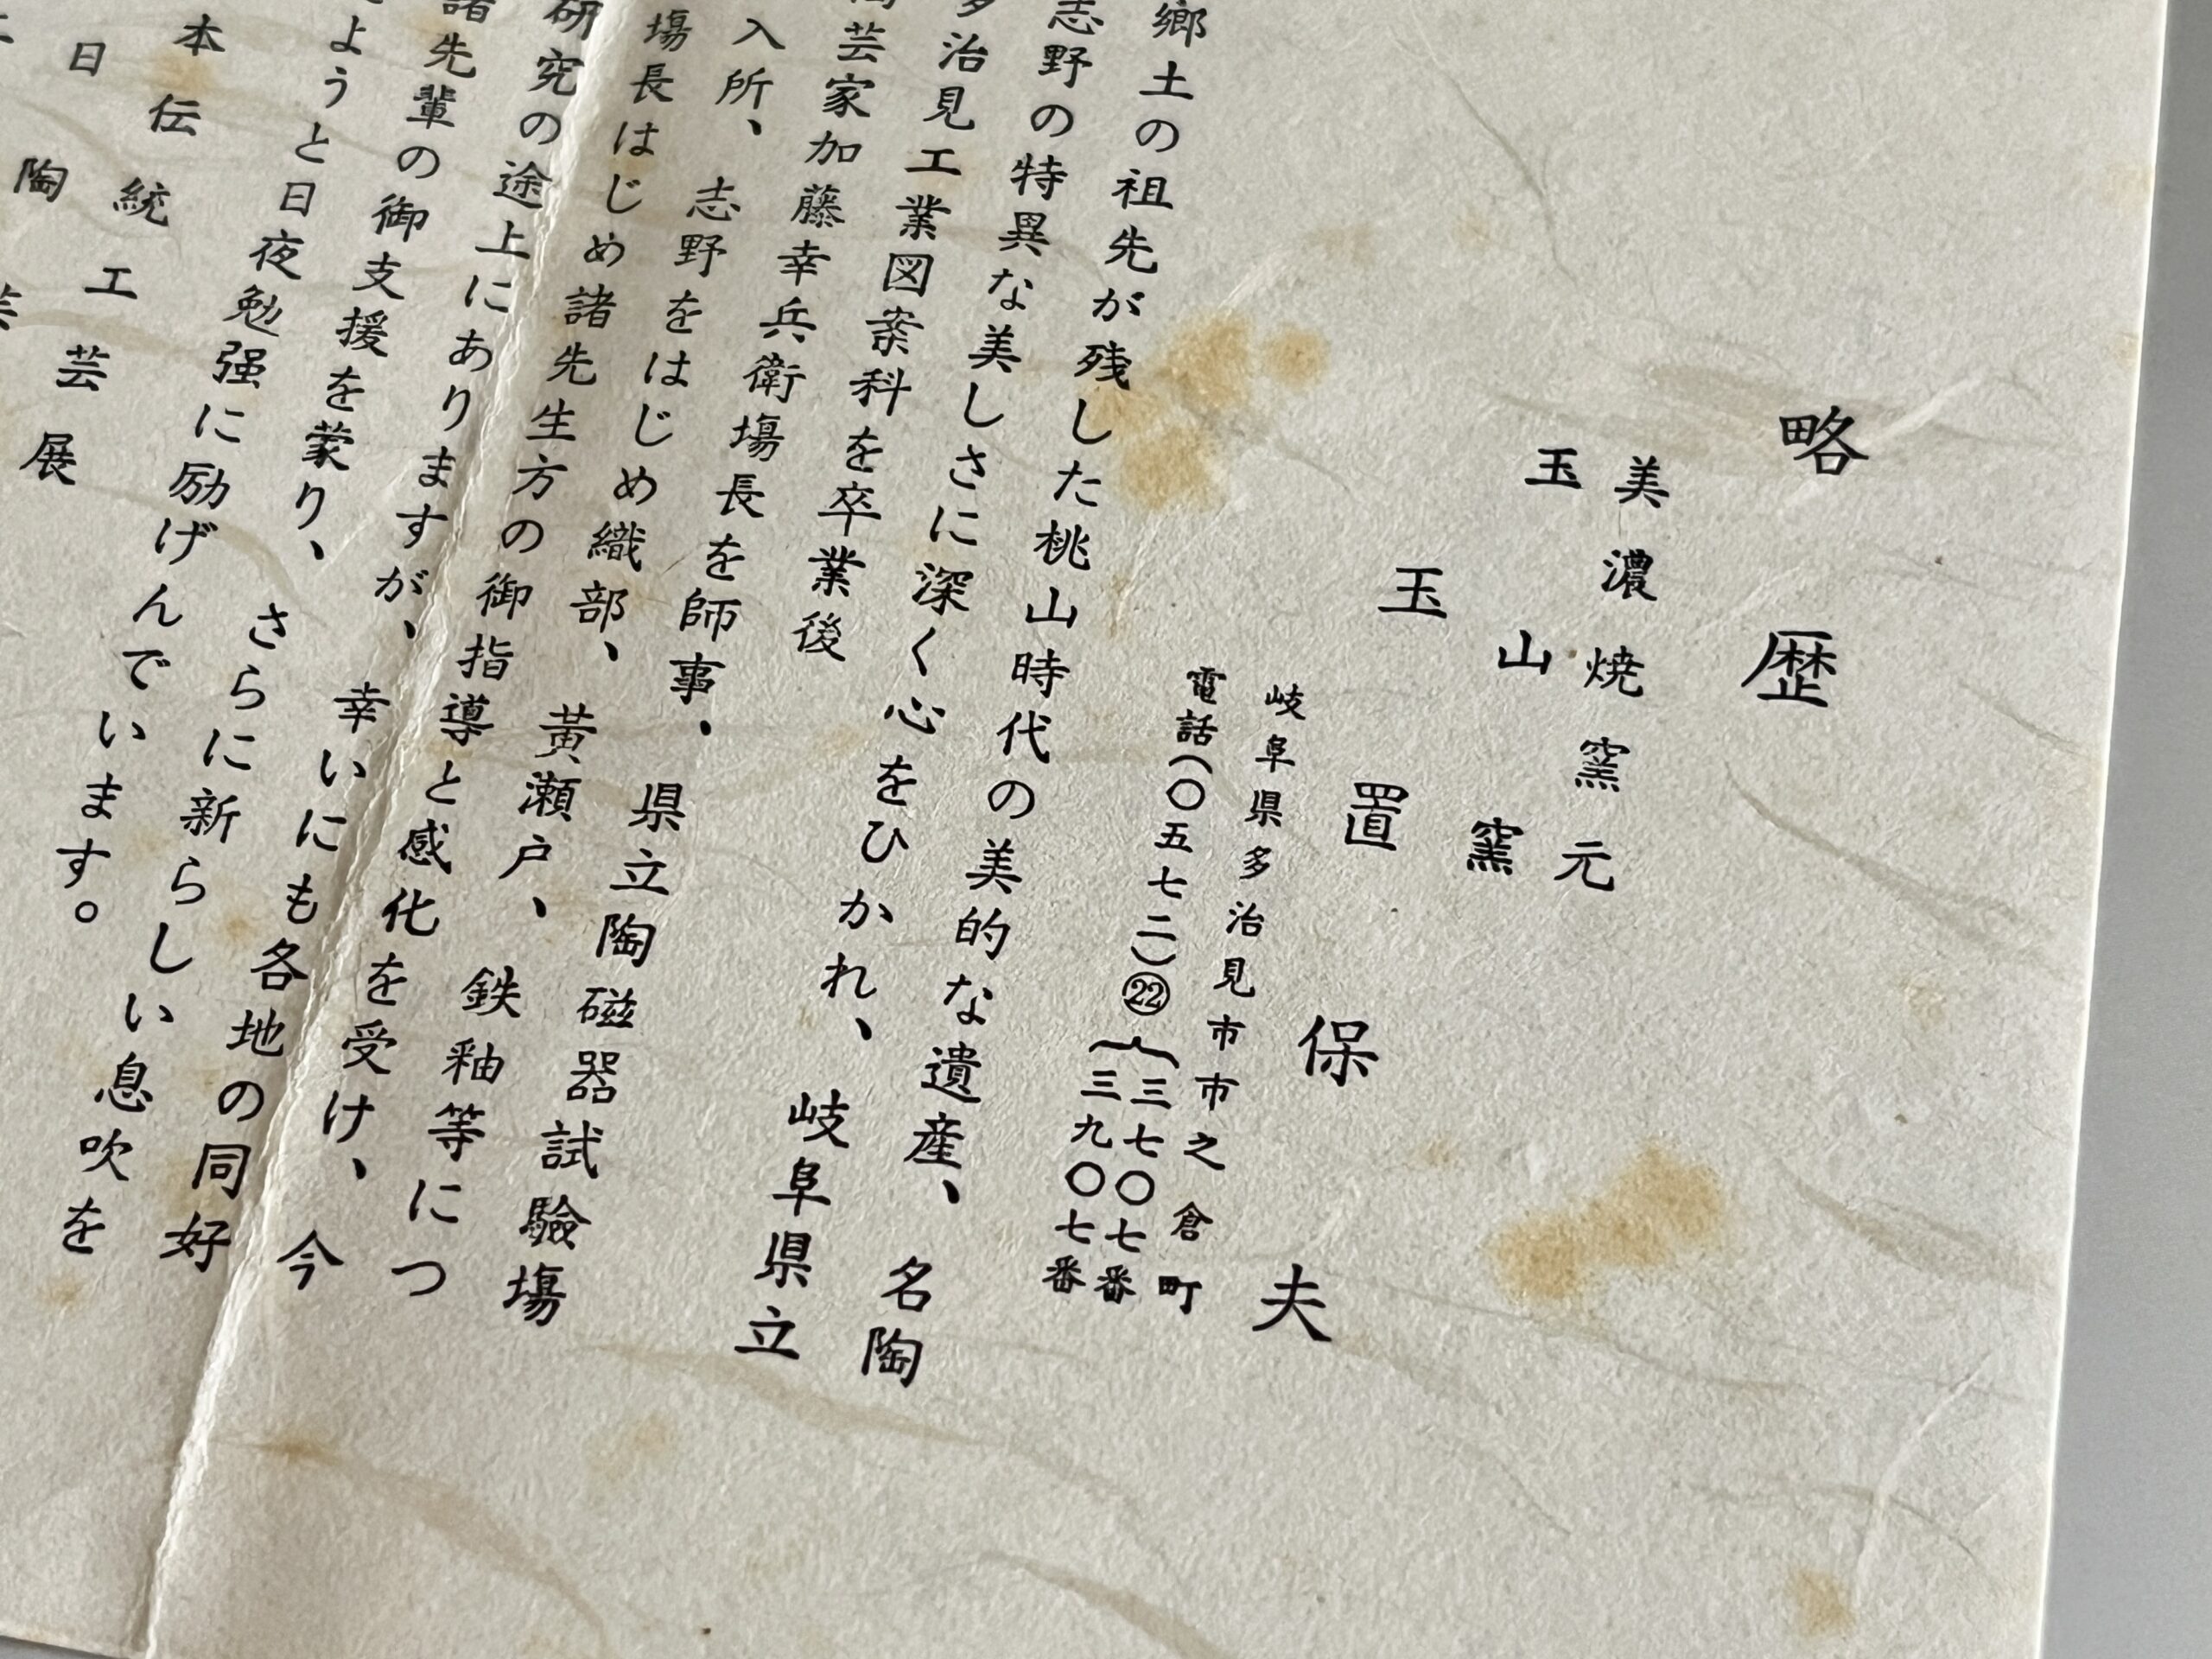 略歴
美濃焼窯元
玉山窯
玉置保夫
岐阜県多治見市市之倉町
電話(〇五七二)㉒{三七〇七番
三九〇七番
郷土の祖先が残した桃山時代の美的な遺産、名陶
志野の特異な美しさに深く心をひかれ、岐阜県立
多治見工業図案科を卒業後
芸家加藤幸兵衛塲長を師事、県立陶磁器試驗塲
入所、志野をはじめ織部、黄瀬戸、鉄釉等につ
塲長はじめ諸先生方の御指導と感化を受け、今
研究の途上にありますが、幸いにも各地の同好
諸先輩の御支援を蒙り、さらに新らしい息吹を
ようと日夜勉强に励げんでいます。
本伝統工芸展
日陶